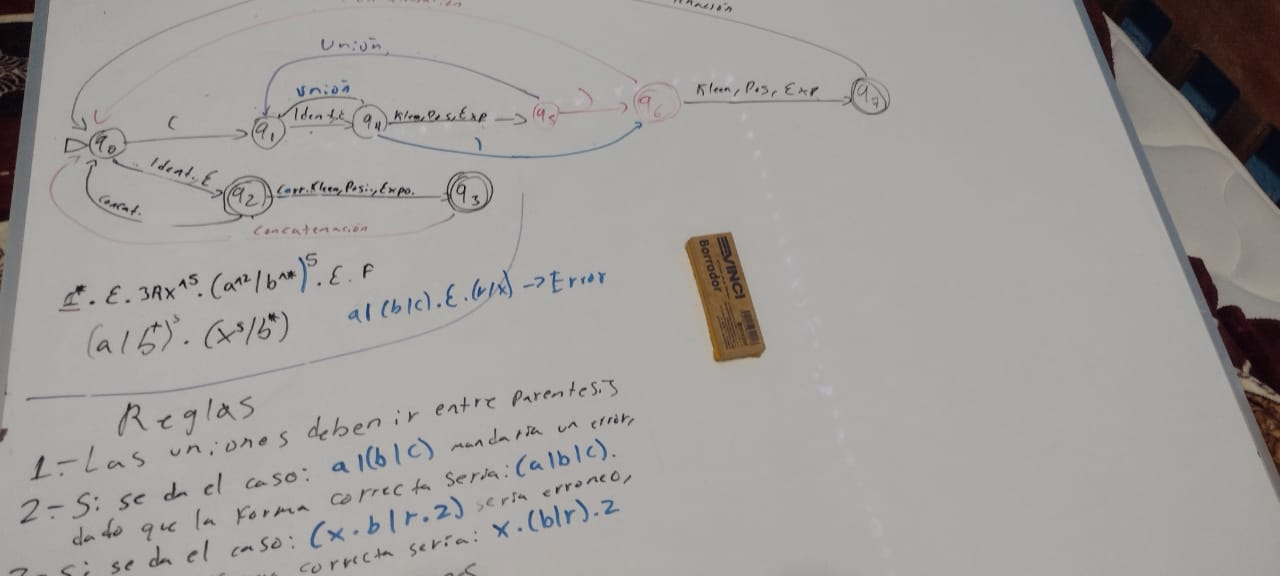 Unión
Unión
(
Ident.
Kleen,Pos,Exp
)
Kleen, Pos, Exp
)
q0
q1
q4
q5
q6
q7
Ident. E
q2
Corr.Kleen,Posi.,Expo.
q3
Concat.
Concatenación
. E. 3Ax^5. (a^2/b^*)^5 . E. F
a|(b|c).E.(r/x) → Error
(a/b^+)^5 . (x^5/b^*)
VINCI
Borrador
Reglas
1.- Las uniones deben ir entre Parentesis
2.- Si se da el caso: a|(b|c) mandaria un error,
dado que la forma correcta seria: (a|b|c).
Si se da el caso: (x.b|r.2) seria erroneo,
correcta seria: x.(b|r).2